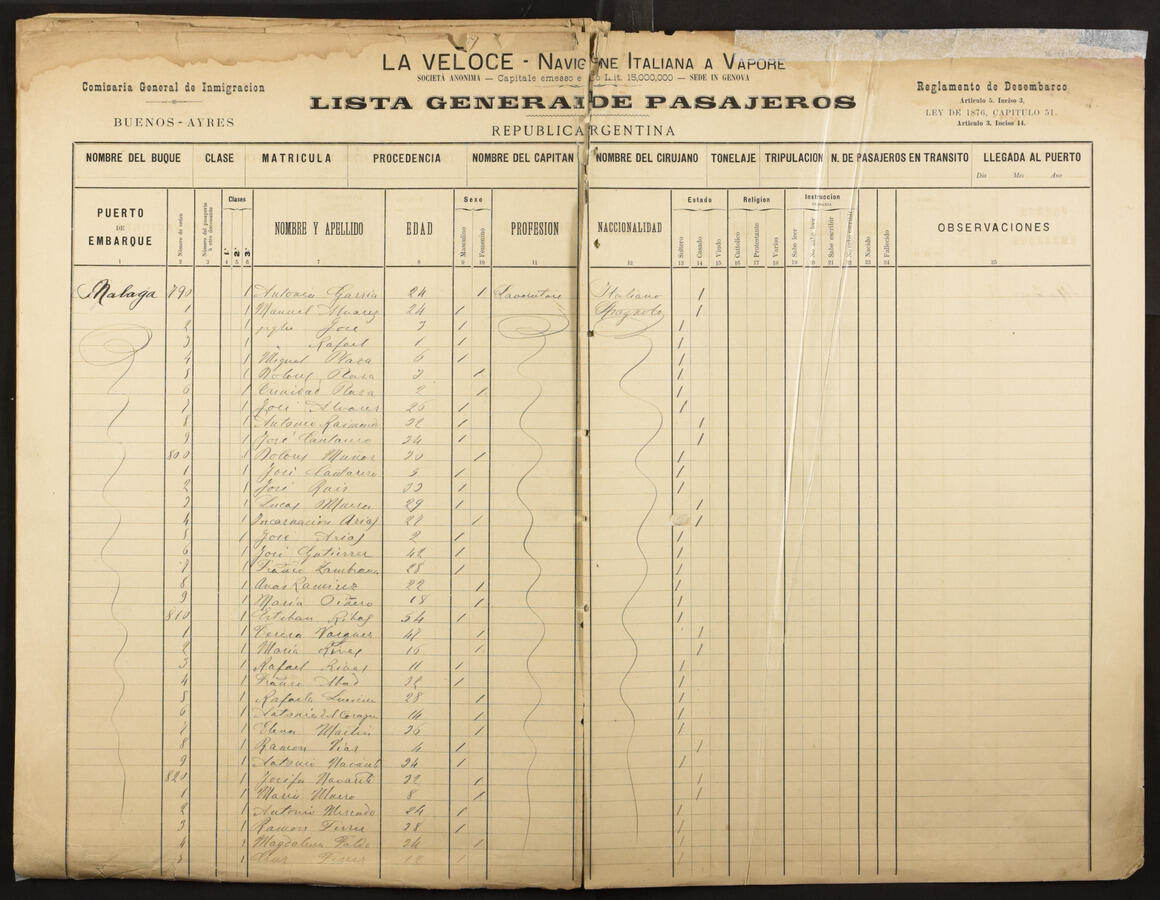 LA VELOCE - NAVIG NE ITALIANA A VAPORE
SOCIETÀ ANONIMA — Capitale emesso e Lit. 15,000,000 — SEDE IN GENOVA
Comisaria General de Inmigracion
BUENOS-AYRES
LISTA GENERAL DE PASAJEROS
REPUBLICA RGENTINA
Reglamento de Desembarco
Articulo 5. Inciso 3,
LEY DE 1876, CAPITULO 51.
Articulo 3. Inciso 14.
NOMBRE DEL BUQUE CLASE MATRICULA PROCEDENCIA NOMBRE DEL CAPITAN NOMBRE DEL CIRUJANO TONELAJE TRIPULACION N. DE PASAJEROS EN TRANSITO LLEGADA AL PUERTO
Dia Mes Ano
PUERTO DE EMBARQUE Número de orden Clases 1.ª 2.ª 3.ª NOMBRE Y APELLIDO EDAD Sexo Masculino Femenino PROFESION NACCIONALIDAD Estado Soltero Casado Viudo Religion Catolico Protestante Varios Instruccion Sabe leer No sabe leer Sabe escribir Nacido Fallecido OBSERVACIONES
1 2 3 4 5 6 7 8 9 10 11 12 13 14 15 16 17 18 19 20 21 22 23 24 25
Malaga 790 1 Antonia Garcia 24 1 Italiano 1
1 1 Manuel Alvarez 24 1 Spagnolo 1
2 1 José 3 1 1
3 1 " Rafael 1 1 1
4 1 Miguel Plasa 6 1 1
5 1 Dolores Plasa 3 1 1
6 1 Trinidad Plasa 2 1 1
7 1 José Alvarez 26 1 1
8 1 Antonio Raimond 32 1 1
9 1 José Cantarero 34 1 1
800 1 Dolores Muñoz 30 1 1
1 1 José Cantarero 5 1 1
2 1 José Ruis 33 1 1
3 1 Lucas 29 1 1
4 1 Incarnacion Arias 22 1 1
5 1 José Arias 2 1 1
6 1 José Gutierrez 42 1 1
7 1 Franco Zambrana 28 1 1
8 1 Ana Ramirez 22 1 1
9 1 Maria Piñero 18 1 1
810 1 Esteban Ribas 54 1 1
1 1 Teresa Vasquez 47 1 1
2 1 Maria Rivas 16 1 1
3 1 Rafael Rivas 11 1 1
4 1 Franco Abad 32 1 1
5 1 Rafaela 28 1 1
6 1 Antonia del 14 1 1
7 1 Elena Martin 36 1 1
8 1 Ramon 4 1 1
9 1 Antonio 34 1 1
820 1 Josefa 32 1 1
1 1 Maria 8 1 1
2 1 Antonio Mercado 24 1 1
3 1 Ramon Ferrer 38 1 1
4 1 Magdalena 34 1 1
5 1 12 1 1